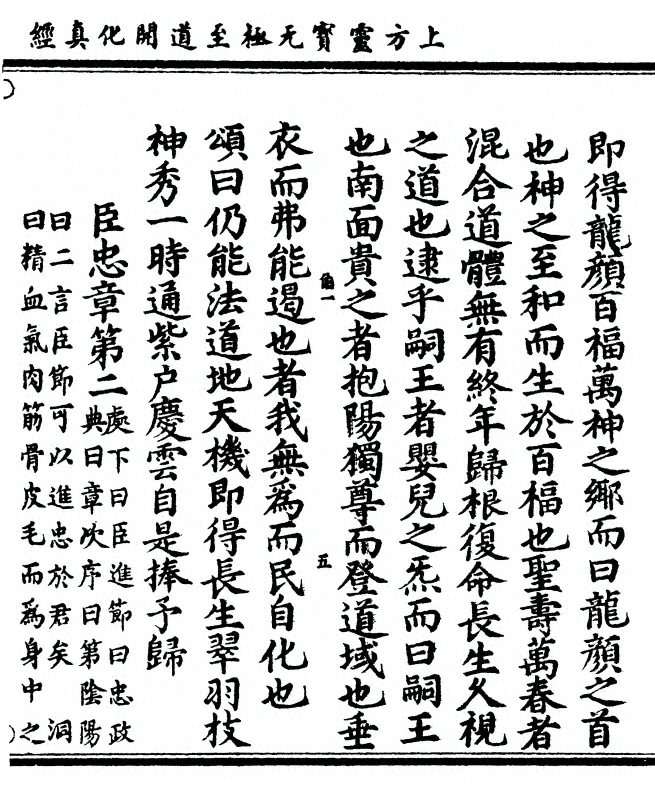 上方靈寶无極至道開化真經
即得龍顏百福萬神之鄉而曰龍顏之首
也神之至和而生於百福也聖壽萬春者
混合道體無有終年歸根復命長生久視
之道也逮乎嗣王者嬰兒之炁而曰嗣王
也南面貴之者抱陽獨尊而登道域也垂
角一
五
衣而弗能遏也者我無為而民自化也
頌曰仍能法道地天機即得長生翠羽枝
神秀一時通紫户慶雲自是捧予歸
臣忠章第二處下曰臣進節曰忠政
典曰章次序曰第陰陽
曰二言臣節可以進忠於君矣 洞
曰精血氣肉筋骨皮毛而為身中之